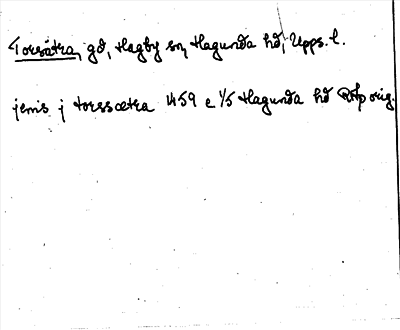 Torsätra, gd, Hagby sn, Hagunda hd, Upps. l.
jenis j torssætra 1459 e 1/5 Hagunda hd RAp orig.